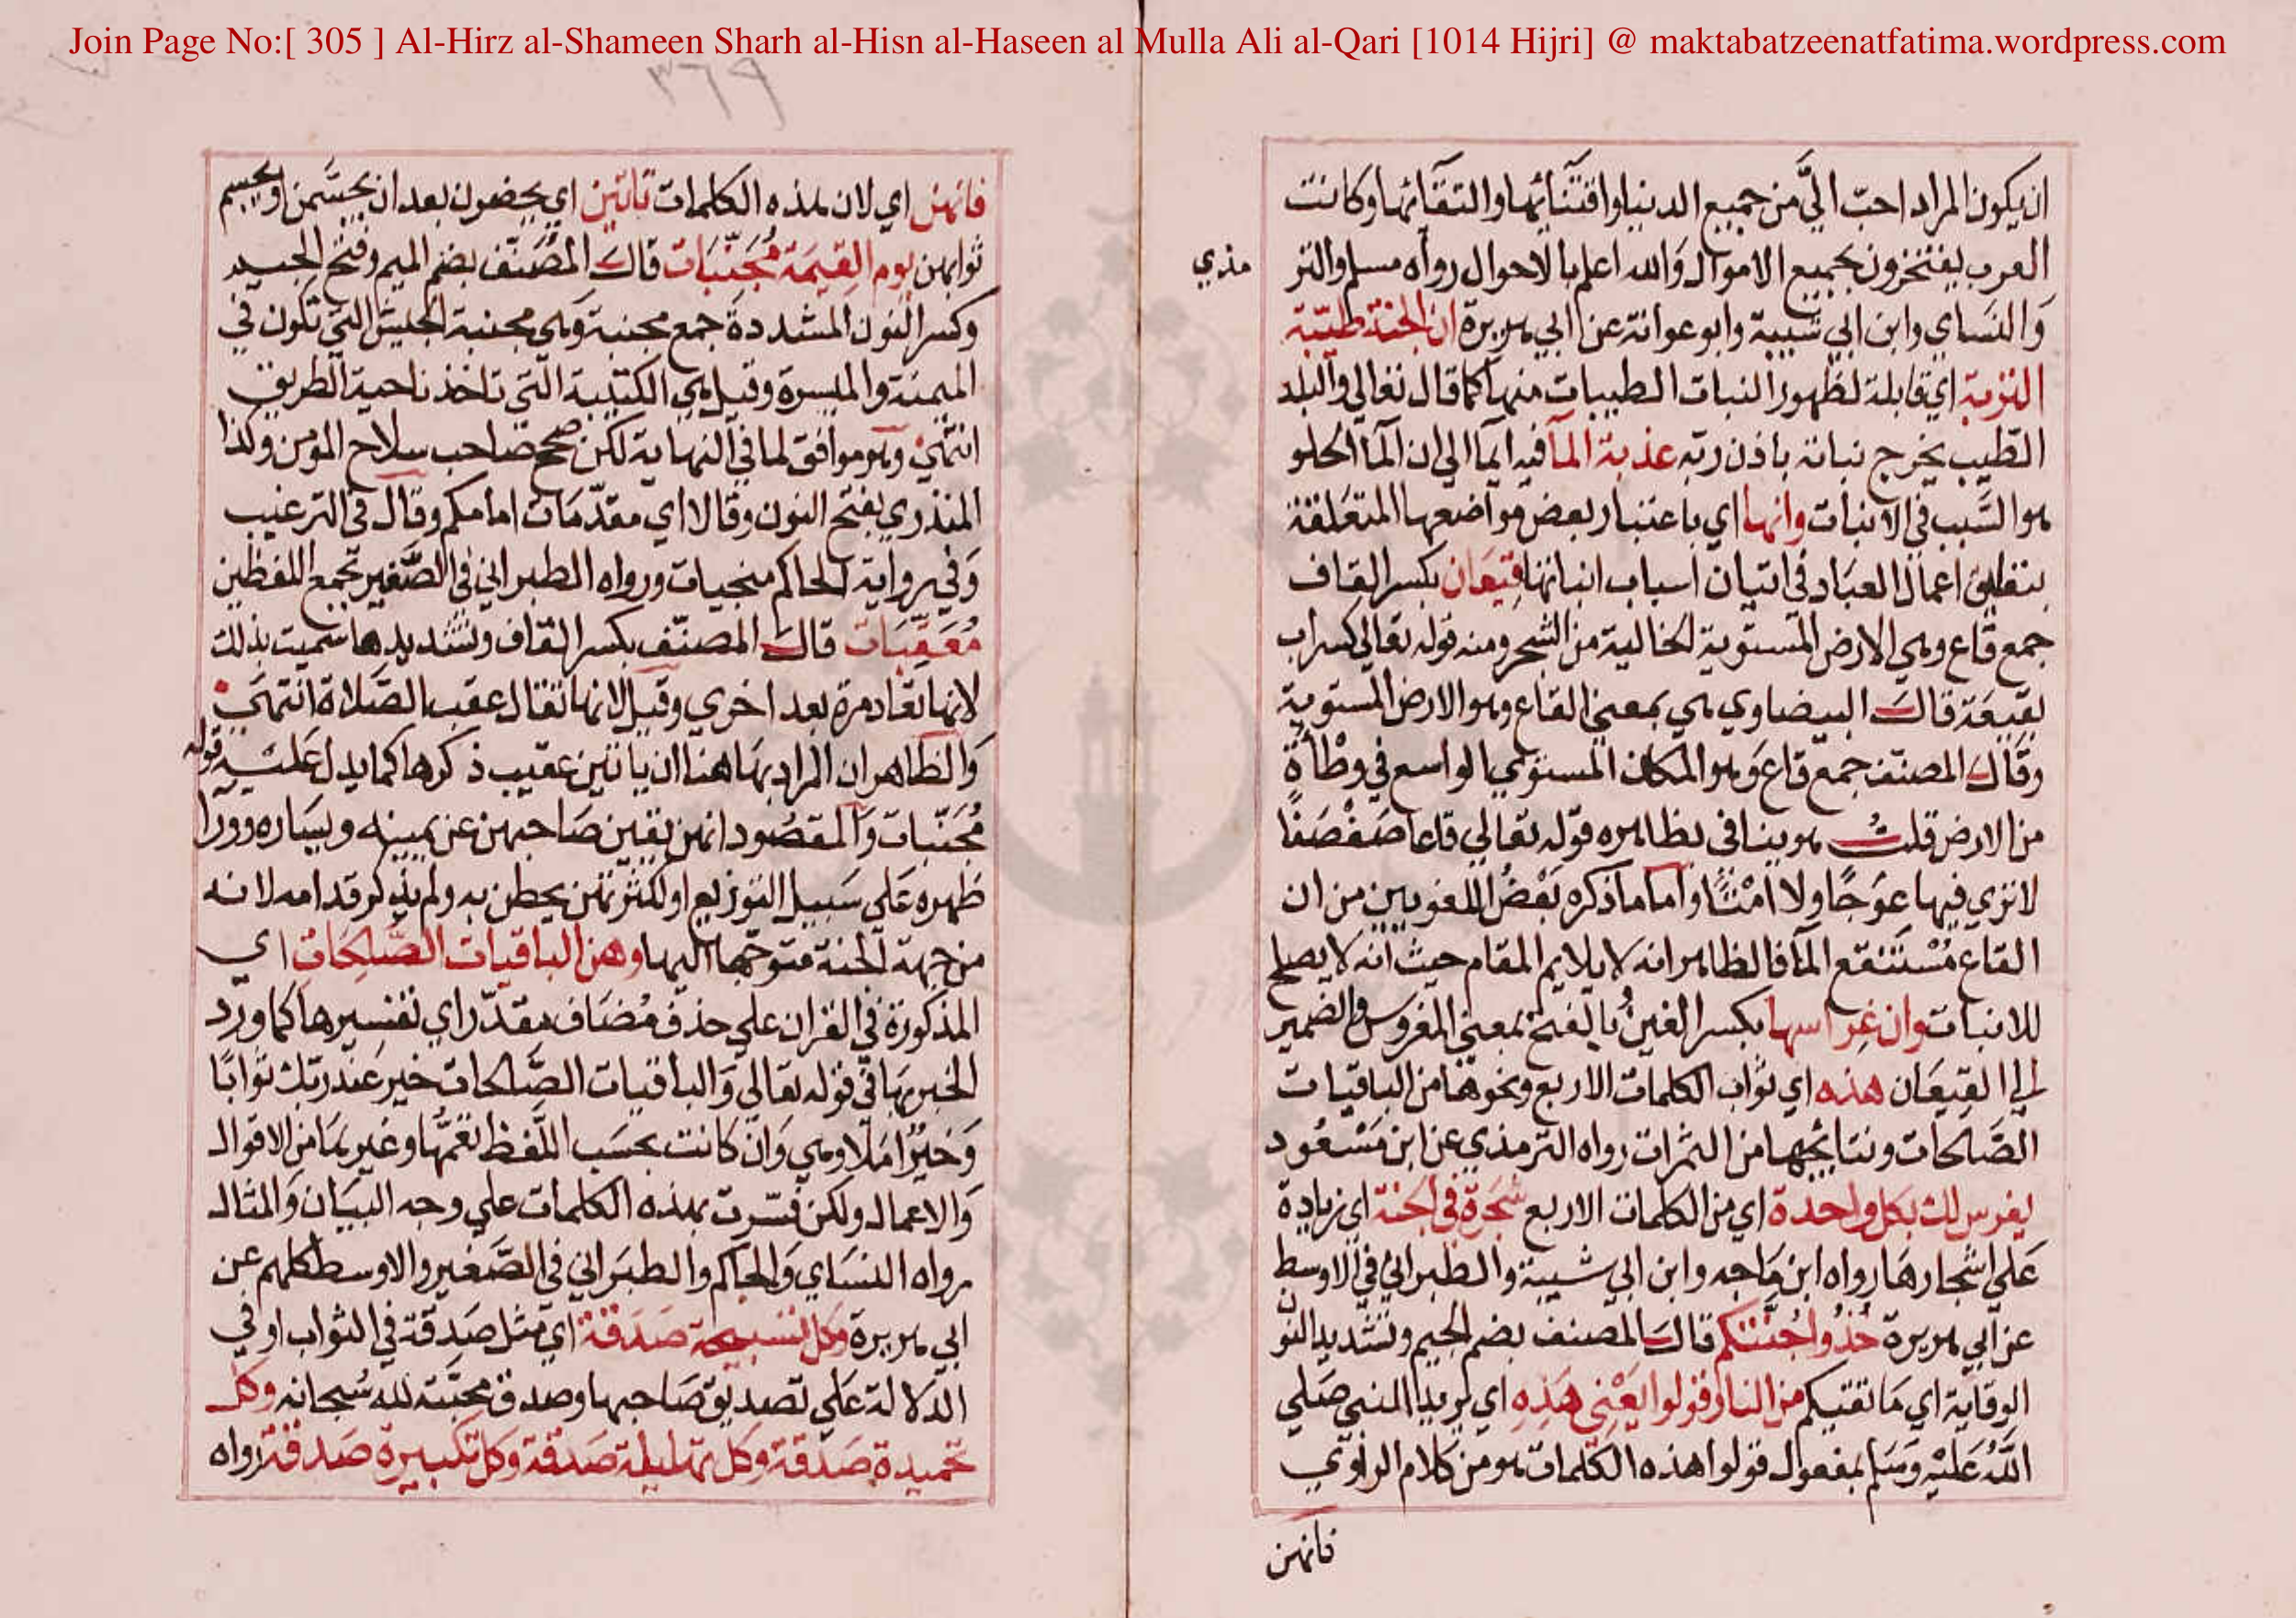 Join Page No:[ 305 ] Al-Hirz al-Shameen Sharh al-Hisn al-Haseen al Mulla Ali al-Qari [1014 Hijri] @ maktabatzeenatfatima.wordpress.com
٣٦٩
ان يكون المراد احبّ اليَّ من جميع الدنيا واقتنَائها والتقآئها وكانت
العرب يفتخرون بجميع الاموال وَالله اعلم بالاحوال رواه مسلم والتر
مذي
وَالنسَاي وابن ابي شيبة وابو عوانة عن ابي هريرة ان الجنة طيّبة
التربة اي قابلة لظهور النبات الطيبات منها كما قال تعالي والبلد
الطّيب يخرج نباته باذن ربّه عذبة المآ فيه ايما الي ان المآ الحلو
هو السَّبب في الانبات وانها اي باعتبار بعض مواضعها المتعَلقة
بتعليق اعمال العبَاد في اتيان اسباب انباتها قِيعَان بكسر القاف
جمع قاع وهي الارض المستوية الخالية من الشجر ومنه قوله تعالي كسراب
بقيعَة قالَ البيضاوي هي بمعني القاع وهو الارض المستوية
وقَال المصنّف جمع قاع وَهو المكان المستوي الواسع في وطْأةٍ
من الارض قلتُ هو ينافي بظاهره قوله تعالي قاعا صَفْصَفًا
لا تري فيها عوَجًا ولا امْتًا واما ما ذكره بَعْضُ اللغويين من ان
القاع مُسْتَنقع المآ فالظاهر انه لا يلايم المقام حيث انه لا يصلح
للانبات وان غِراسها بكسر الغين بالفتح بمعني المغروس والضمير
الي القِيعَان هذه اي ثواب الكلمات الاربع ونحوها من الباقيات
الصَّالحات ونتايجها من الثمرات رواه الترمذي عن ابن مَسْعُود
يغرس لك بكل واحدة اي من الكلمات الاربع شجَرة في الجنة اي زيادة
عَلي اشجارهَا رواه ابن مَاجه وابن ابي شيبة والطبراني في الاوسط
عن ابي هريرة خُذُوا جُنَّتكم قالَ المصنف بضم الجيم وتشديد النون
الوقاية اي مَا تقيكم من النار قولوا يَعْنِي هَذِهِ اي يريد النبي صَلي
اللّٰه عَليْه وَسَلم بمفعول قولوا هذه الكلمات هو من كلام الراوي
فانهن
فانهن اي لان هذه الكلمات تاتين اي يحضرون بعد ان يجسَّمن او يجسم
ثوابهن يوم القيمَة مُجَنِّبَات قالَ المصَنّف بضم الميم وفتح الجيم
وكسر النون المشددة جمع مجنبة وَهي مجنبة الجيش التي تكون في
الميمنة والميسرة وقيل هي الكتيبة التي تاخذ ناحية الطريق
انتهَيْ وهو موافق لما في النهاية لكن صحح صاحب سلاح المومن وكذا
المنذري بفتح النون وقالا اي مقدّمَات امامكم وقال في الترغيب
وَفي رواية الحاكم منجيات ورواه الطبراني في الصَّغير بجمع اللفظين
مُعَقِّبَات قالَ المصنّف بكسر القاف وتشديدها سميت بذلك
لانها تعَاد مرة بعد اخري وقيل لانها تقال عقب الصَّلاة انتهَي
وَالظاهر ان المراد بهَا هنا ان ياتين عقيب ذكرها كما يدل عَليْه قوله
مُجَنّبات وَالمقصُود انهن يقين صَاحبهن عن يمينه ويسَاره وورا
ظهره عَلي سَبيل التوزيع او لكثرتهن يحطن به ولم يذكر قدامه لانه
من جهة الجنة متوجها اليها وهن الباقيات الصَّالحات اي
المذكورة في القرآن علي حذف مُضَاف مقدّر اي تفسيرها كما ورد
الخبر بهَا في قوله تعَالي وَالباقيات الصَّالحات خير عند ربك ثوابًا
وَخيْرٌ امَلا وهي وَان كانت بحسَب اللَّفظ تعُمّها وغيرهَا من الاقوال
وَالاعمال ولكن فسّرت بهذه الكلمات علي وجه البيَان وَالمثال
رواه النسَاي وَالحاكم والطبَراني في الصَّغير والاوسط كلهم عن
ابي هريرة وكل تسبيحة صَدقة اي مثل صَدقة في الثواب او في
الدلالة عَلي تصديق صَاحبها وصدق محبّته لله سُبحانه وكل
تحميدة صَدقة وكل تهليلة صَدقة وَكل تكبيرة صَدقة رواه